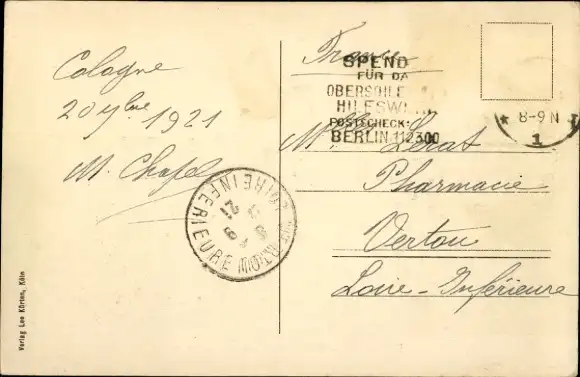 Cologne
20 7bre 1921
M. Chapel
France
SPEND
FÜR DA
OBERSCHLE
HILFSW
POSTSCHECK:
BERLIN 112300
* 8-9 N
1
Mlle Lerat
Pharmacie
Vertou
Loire-Inférieure
VERTOU
LOIRE INFERIEURE
21
Verlag Leo Körten, Köln